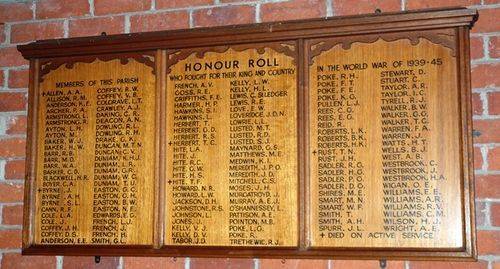 HONOUR ROLL
MEMBERS OF THIS PARISH
WHO FOUGHT FOR THEIR KING AND COUNTRY
IN THE WORLD WAR OF 1939-45
+ALLEN, A.A.
ALLISON, R.
ANDERSON, K.E.
ARCHER, F.
ARMSTRONG, L.
ARMSTRONG, R.
AYTON, L.H.
AYTON, M.
BAKER, W.J.
BAKER, H.
BARR, R.R.
BARR, M.D.
BARR, W.A.
BARKER, C.D.
BLACKWELL, H.R.
BOYER, C.A.
+BYRNE, J.
BYRNE, A.H.
BYRNE, S.
CANN, R.F.
COLE, L.A.
COLE, J.
COFFEY, J.H.
COFFEY, D.S.
ANDERSON, E.E.
COFFEY, B.W.
COFFEY, V.B.
COLGRAVE, L.T.
CRAWLEY, A.J.
DAKING, C.R.
DEACON, A.N.
DOWLING, B.
DOWLING, R.H.
DRAKE, G.R.
DUNCAN, M.T.N.
DUNCAN, G.
DUNHAM, K.H.J.
DUNHAM, L.L.
DUNHAM, V.R.
DUNHAM, G.
DUNHAM, T.
DUNHAM, T.
EASTON, O.G.
EASTON, D.
EASTON, W.
EASTON, R.
EDWARDS, E.G.
FRENCH, J.
FRENCH, H.
SMITH, G.L.
FRENCH, A.V.
GOSS, R.E.
GRIFFITHS, F.E.
HARMER, H.P.
HAWKINS, S.
HAWKINS, L.
HERBERT, T.
HERBERT, G.D.
HERBERT, R.S.
+HERBERT, T.C.
HITE, L.A.
HITE, J.
HITE, R.C.
HITE, G.W.
HITE, H.S.
HITE, F.
HOWARD, N.R.
HOWARD, L.W.
JACKSON, D.H.
JOHNSTONE, R.S.
JOHNSON, L.R.
JONES, J.
KELLY, V.J.
KELLY, D.V.
TABOR, J.D.
KELLY, L.W.
KELLY, H.L.
LEWIS, C. SLLEDGER
LEWIS, R.E.
LOVE, E.W.
LOVERIDGE, J.D.N.
LOWER, L.L.
LUSTED, M.T.
LUSTED, R.D.
LUSTED, S.J.
MAYNARD, G.S.
MATTHEWS, M.E.
MEDWIN, K.P.
MEREDITH, J.
MEREDITH, J.D.
MITCHELL, C.S.
MOSES, J.H.
MURGATROYD, J.
MURRAY, A.E.J.
O'SHANNESSY, D.
PATTISON, A.E.
POINTON, M.B.
POKE, L.G.
POKE, R.
TRETHEWIE, R.J.
POKE, R.H.
POKE, F.T.
POKE, F.E.
POKE, M.
PULLEN, L.J.
REES, C.D.
REES, E.G.
REID, R.
ROBERTS, L.K.
ROBERTS, B.K.
ROBERTS, H.K.
+RUST, T.N.
RUST, J.H.
SADLER, R.G.
SADLER, H.G.
SADLER, P.C.
SADLER, D.O.
SHIRES, M.E.
SMART, M.N.
SMART, W.F.
SMITH, T.
SMITH, A.H.
SPURR, J.L.
STEWART, D.
STUART, C.
TAYLOR, A.R.
TAYLOR, K.C.
TYRELL, R.J.
WALKER, B.W.
WALKER, G.G.
WALKER, T.G.
WARREN, F.A.
WARREN, J.A.
WATTS, H.T.
WELLS, B.J.
WEST, A.B.
WESTBROOK, C.
WESTBROOK, J.
WESTBROOK, H.A.
WIGAN, O.E.
WILLIAMS, E.E.
WILLIAMS, A.R.
WILLIAMS, R.V.
WILLIAMS, C.M.
WILSON, H.J.
WRIGHT, A.E.
+ DIED ON ACTIVE SERVICE.